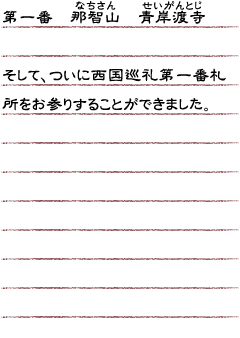 なちさん せいがんとじ
第一番 那智山 青岸渡寺
そして、ついに西国巡礼第一番札
所をお参りすることができました。